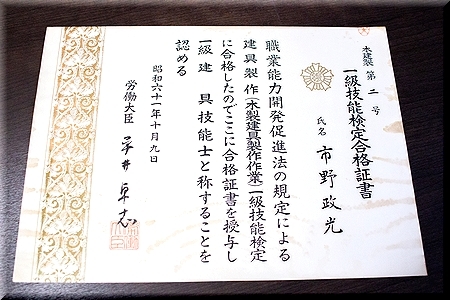 木建製第二号
一級技能検定合格証書
氏名 市野政光
職業能力開発促進法の規定による
建具製作(木製建具製作作業)一級技能検定
に合格したのでここに合格証書を授与し
一級建具技能士と称することを
認める
昭和六十一年十月九日
労働大臣 平井卓志